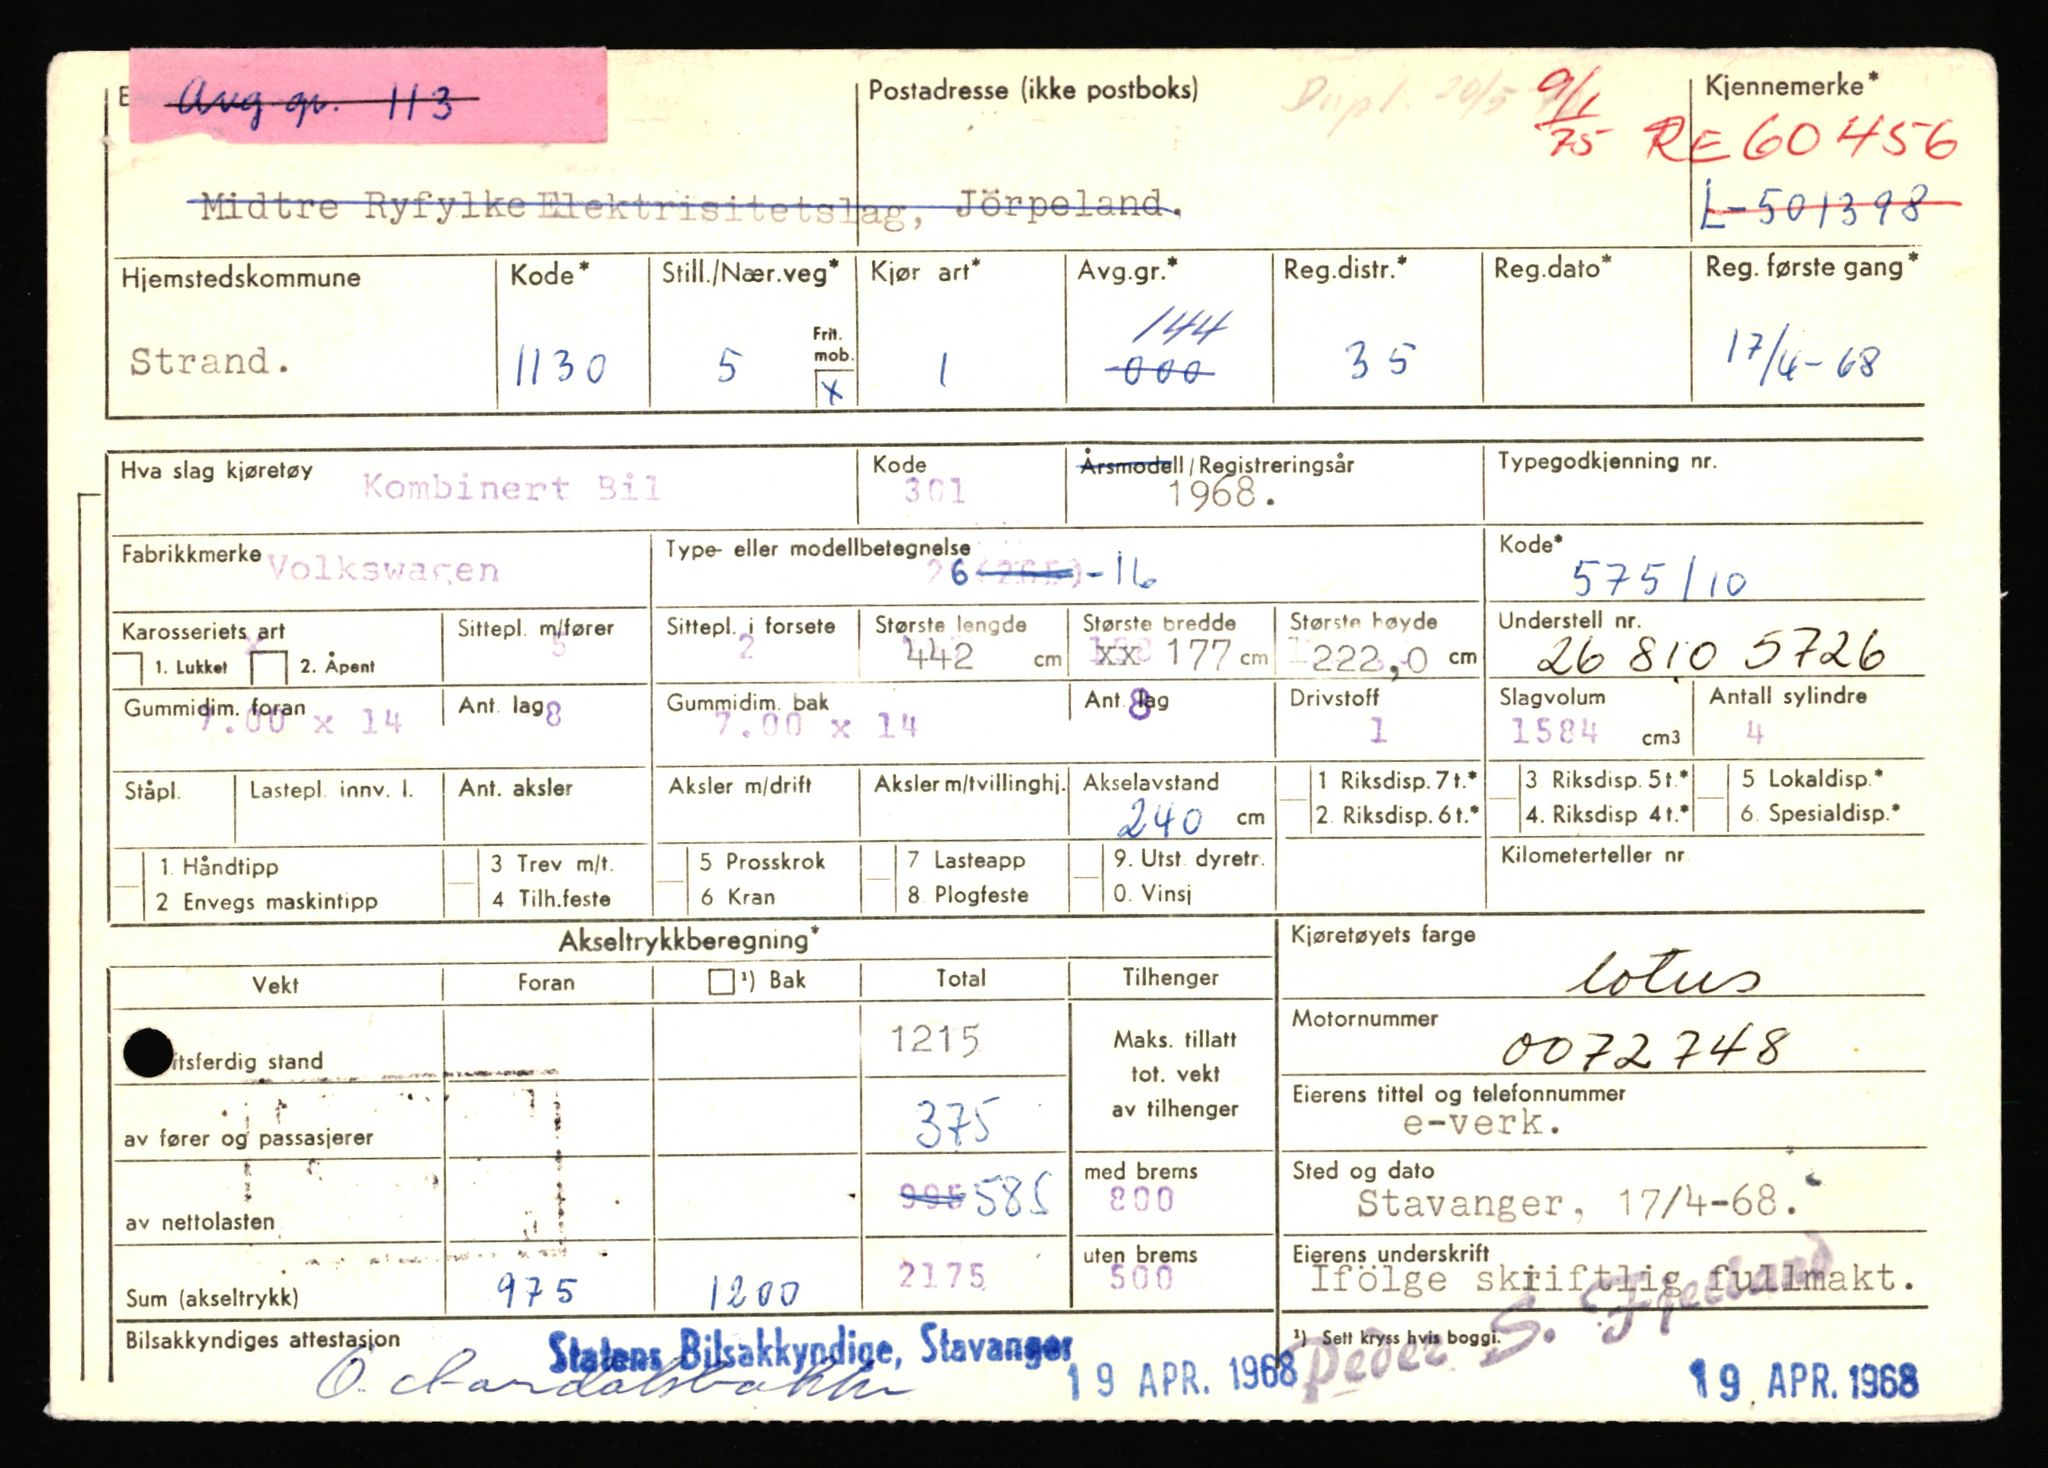 Avg gr. 113
Postadresse (ikke postboks)
Dupl. 20/5
9/1 75
Kjennemerke*
RE60456
Midtre Ryfylke Elektrisitetslag, Jörpeland.
L-501398
Hjemstedskommune Kode* Still./Nær.veg* Kjør art* Avg.gr.* Reg.distr.* Reg.dato* Reg. første gang*
144
Frit. mob.
Strand. 1130 5 x 1 000 35 17/4-68
Hva slag kjøretøy Kombinert Bil Kode 301 Årsmodell/Registreringsår 1968. Typegodkjenning nr.
Fabrikkmerke Volkswagen Type- eller modellbetegnelse 26 (265) -16 Kode* 575/10
Karosseriets art Sittepl. m/fører Sittepl. i forsete Største lengde Største bredde Største høyde Understell nr.
x 1. Lukket 2. Åpent 5 2 442 cm xx 177 cm 222,0 cm 26 810 5726
Gummidim. foran Ant. lag 8 Gummidim. bak Ant. lag 8 Drivstoff Slagvolum Antall sylindre
7.00 x 14 7.00 x 14 1 1584 cm3 4
Ståpl. Lastepl. innv. l. Ant. aksler Aksler m/drift Aksler m/tvillinghj. Akselavstand 1 Riksdisp. 7 t.* 3 Riksdisp. 5 t.* 5 Lokaldisp.*
240 cm 2. Riksdisp. 6 t.* 4. Riksdisp 4 t.* 6. Spesialdisp.*
1. Håndtipp 3 Trev m/t. 5 Prosskrok 7 Lasteapp 9. Utst. dyretr. Kilometerteller nr
2 Envegs maskintipp 4 Tilh.feste 6 Kran 8 Plogfeste 0. Vinsj
Akseltrykkberegning* Kjøretøyets farge
lotus
Vekt Foran ¹) Bak Total Tilhenger
Motornummer
0072748
itsferdig stand 1215 Maks. tillatt
tot. vekt
av tilhenger
Eierens tittel og telefonnummer
e-verk.
av fører og passasjerer 375
med brems
800
Sted og dato
Stavanger, 17/4-68.
av nettolasten 995 585
uten brems
500
Eierens underskrift
Ifölge skriftlig fullmakt.
Sum (akseltrykk) 975 1200 2175
Peder S. Fjelland
Bilsakkyndiges attestasjon
Statens Bilsakkyndige, Stavanger
¹) Sett kryss hvis boggi.
19 APR. 1968
19 APR. 1968